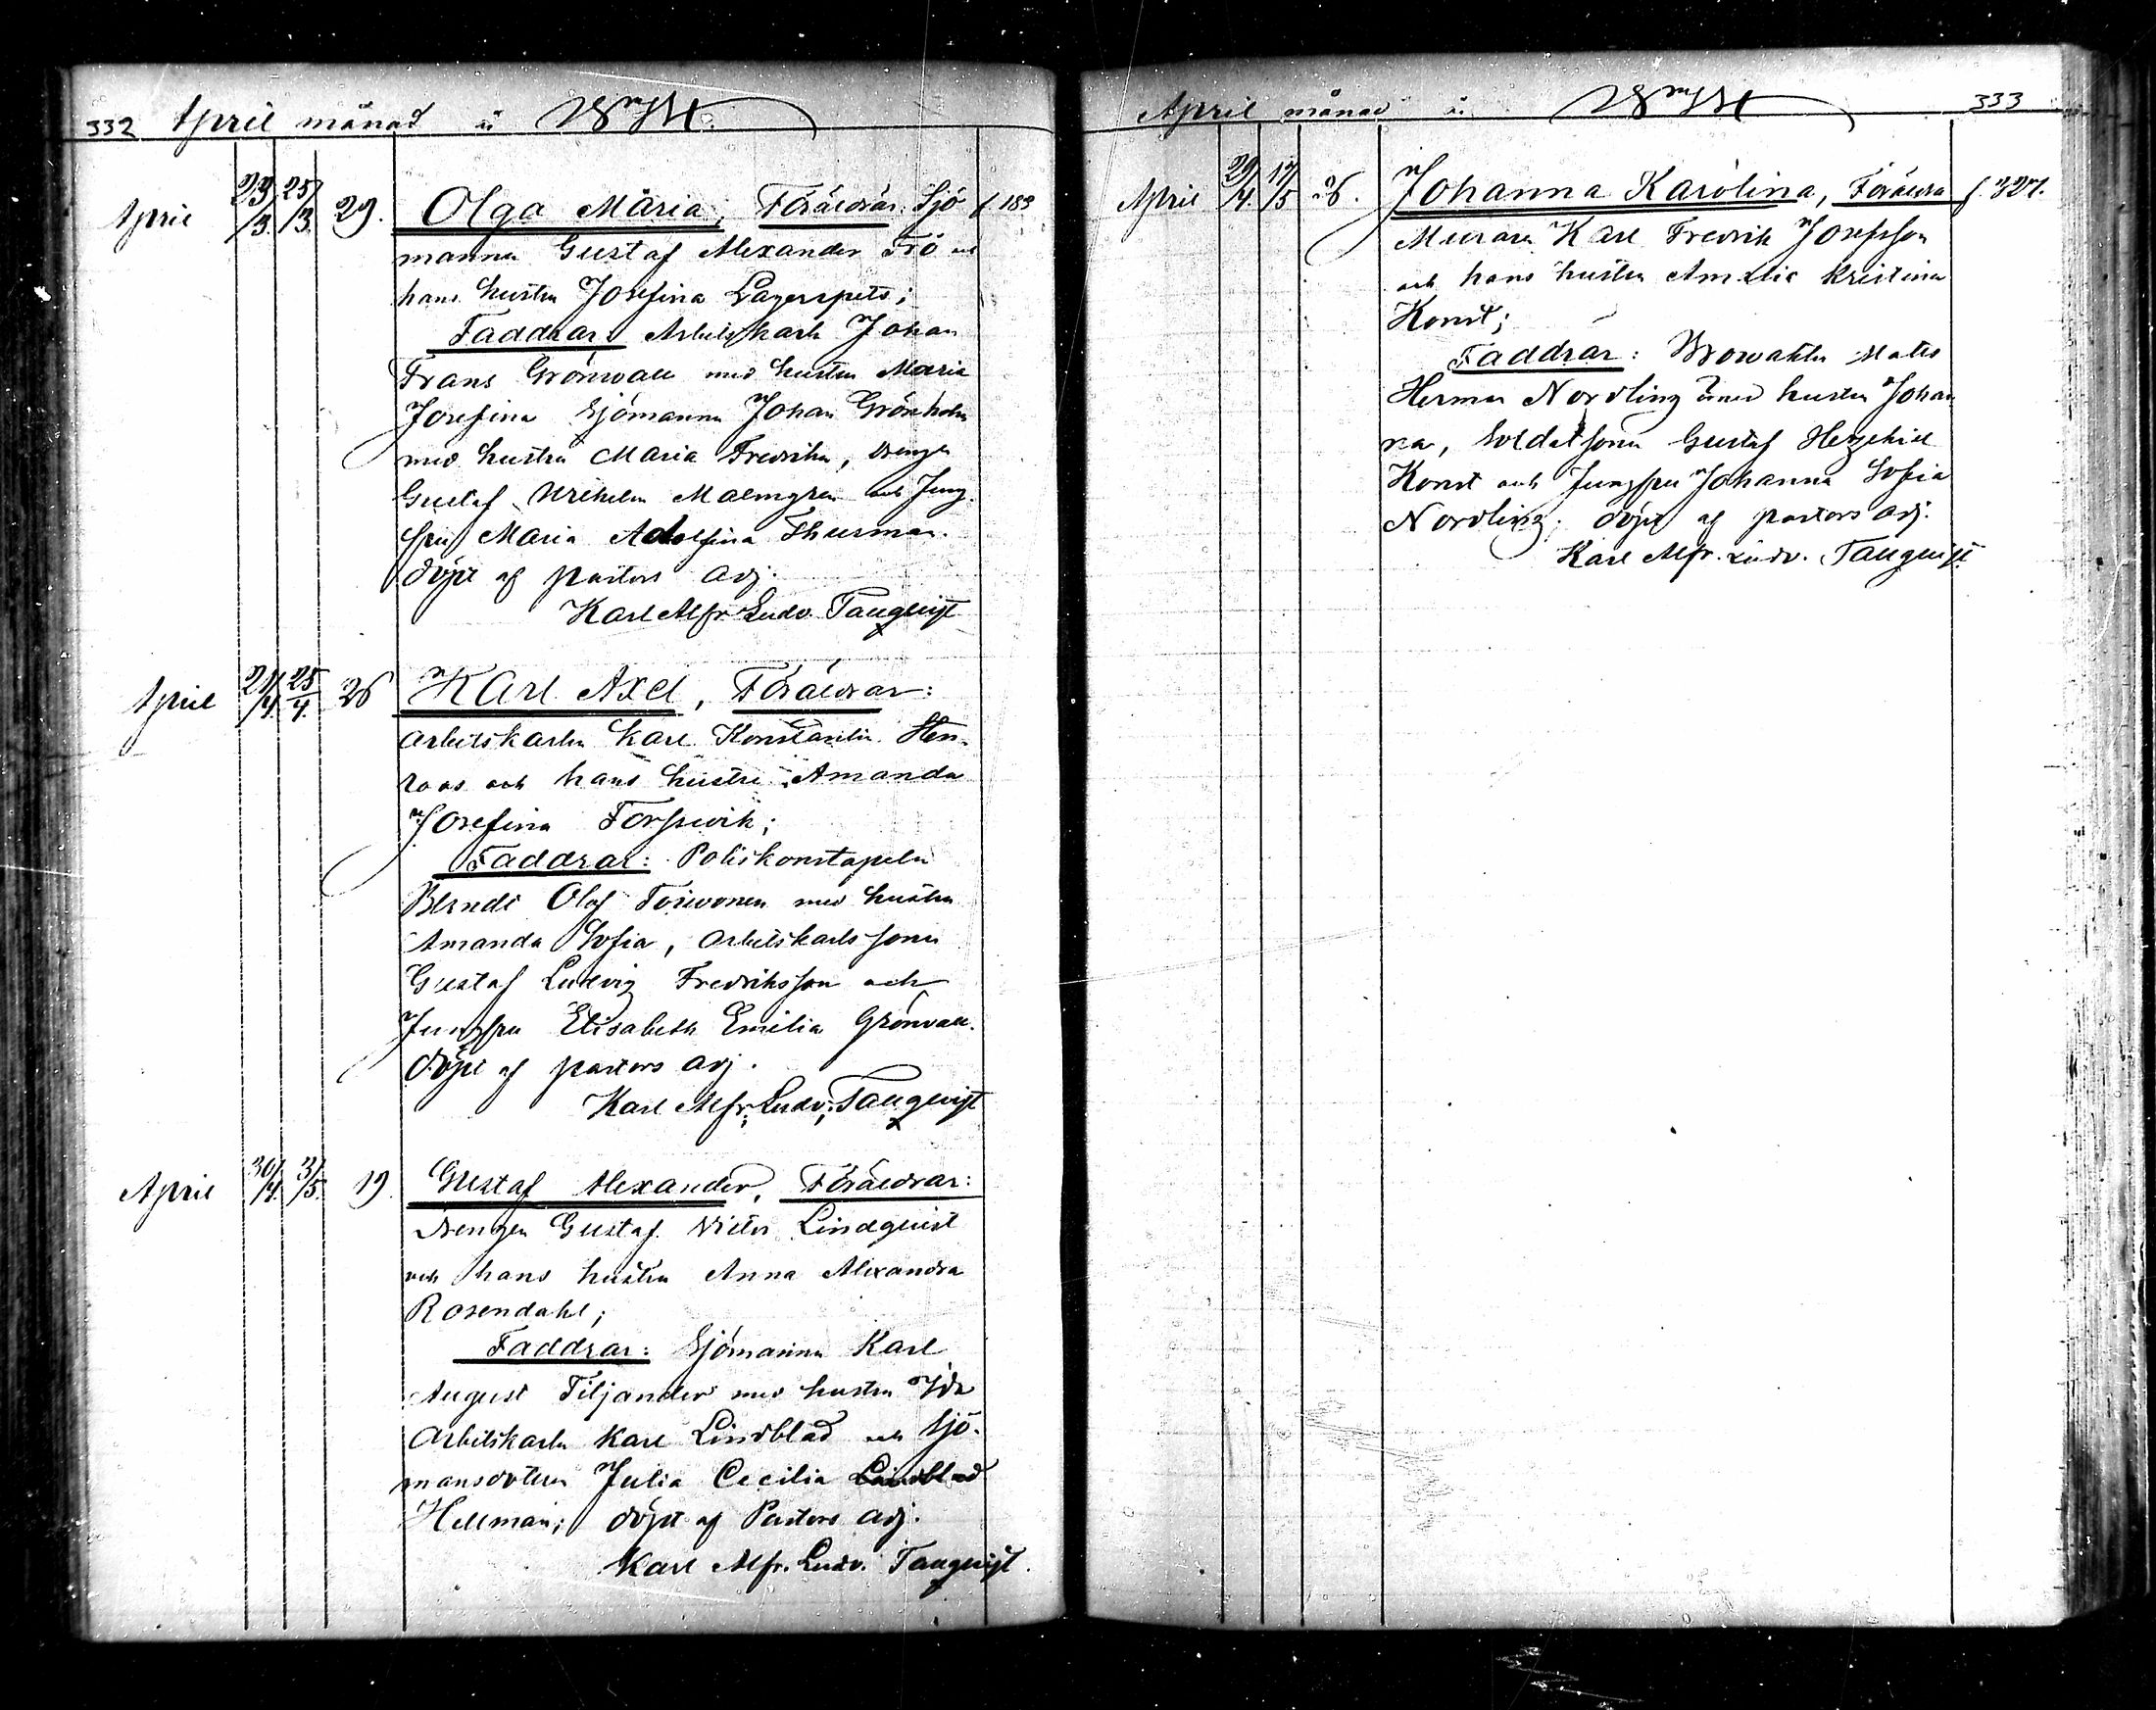 332 April månad år 1874.
April 23/3. 25/3. 29. Olga Maria, Föräldrar: Sjö- f 183
mannen Gustaf Alexander Frö och
hans hustru Josefina Lagerspets;
Faddrar: Arbetskarln Johan
Frans Grönvall med hustru Maria
Josefina Sjömannen Johan Grönholm
med hustru Maria Fredrika, drengen
Gustaf Wilhelm Malmgren och Jung-
fru Maria Adolfina Thurman.
döpt af pastors adj.
Karl Alfr. Ludv. Tauqvist
April 21/4. 25/4. 26 Karl Axel, Föräldrar:
arbetskarln Karl Konstantin Hen-
roos och hans hustru Amanda
Josefina Forsvik;
Faddrar: Poliskonstapeln
Berndt Olof Toivonen med hustru
Amanda Sofia, arbetskarlssonen
Gustaf Ludvig Fredriksson och
Jungfru Elisabeth Emilia Grönvall.
döpt af pastors adj.
Karl Alfr. Ludv. Tauqvist
April 30/4. 3/5. 19 Gustaf Alexander, Föräldrar:
drengen Gustaf Victor Lindqvist
och hans hustru Anna Alexandra
Rosendahl;
Faddrar: Sjömannen Karl
August Tiljander med hustru Ida
Arbetskarln Karl Lindblad och Sjö-
mansdottern Julia Cecilia Lindblad
Hellman; döpt af Pastors adj.
Karl Alfr. Ludv. Tauqvist.
April månad år 1874 333
April 29/4. 17/5 26. Johanna Karolina, Föräldra f. 327.
Muraren Karl Fredrik Josefsson
och hans hustru Amalia Kristina
Konst;
Faddrar: Mats
Herman Nordling med hustru Johan
na, Soldatsonen Gustaf Hezekiel
Konst och Jungfru Johanna Sofia
Nordling; döpt af pastors adj.
Karl Alfr. Ludv. Tauqvist